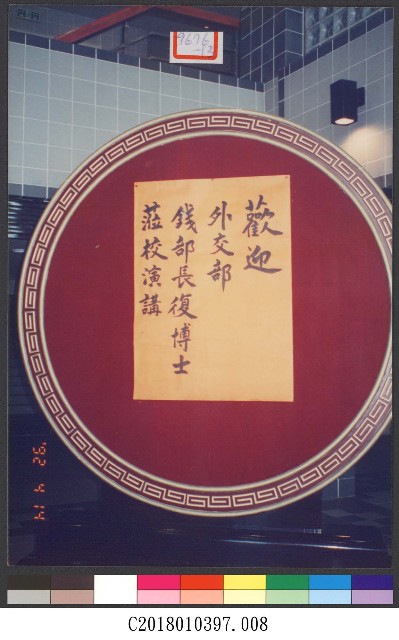 9676
-12
歡迎
外交部
錢部長復博士
蒞校演講
'92 4 14
C2018010397.008